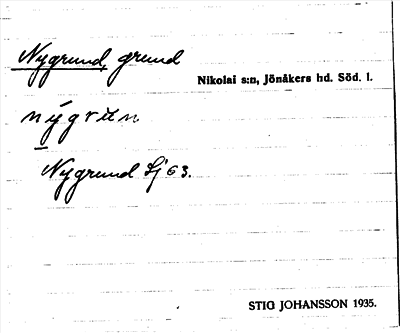 Nygrund, grund
Nikolai s:n, Jönåkers hd. Söd. l.
Nygrund Sj 63.
STIG JOHANSSON 1935.